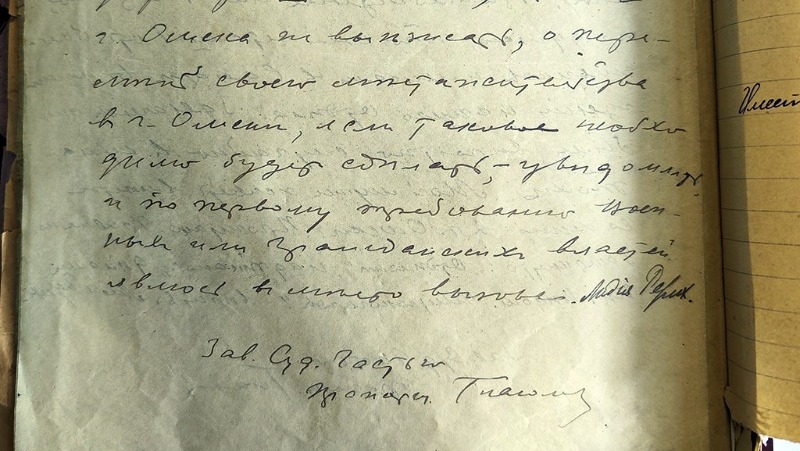 г. Омска не выезжать, о пере-
мене своего местожительства
в г. Омске, если таковое необхо
димо будет сделать, – уведомлять
и по первому требованию воен-
ных или гражданских властей
явлюсь в место вызова. Лидия Рерих.
Зав. Суд. Частью
Имеет